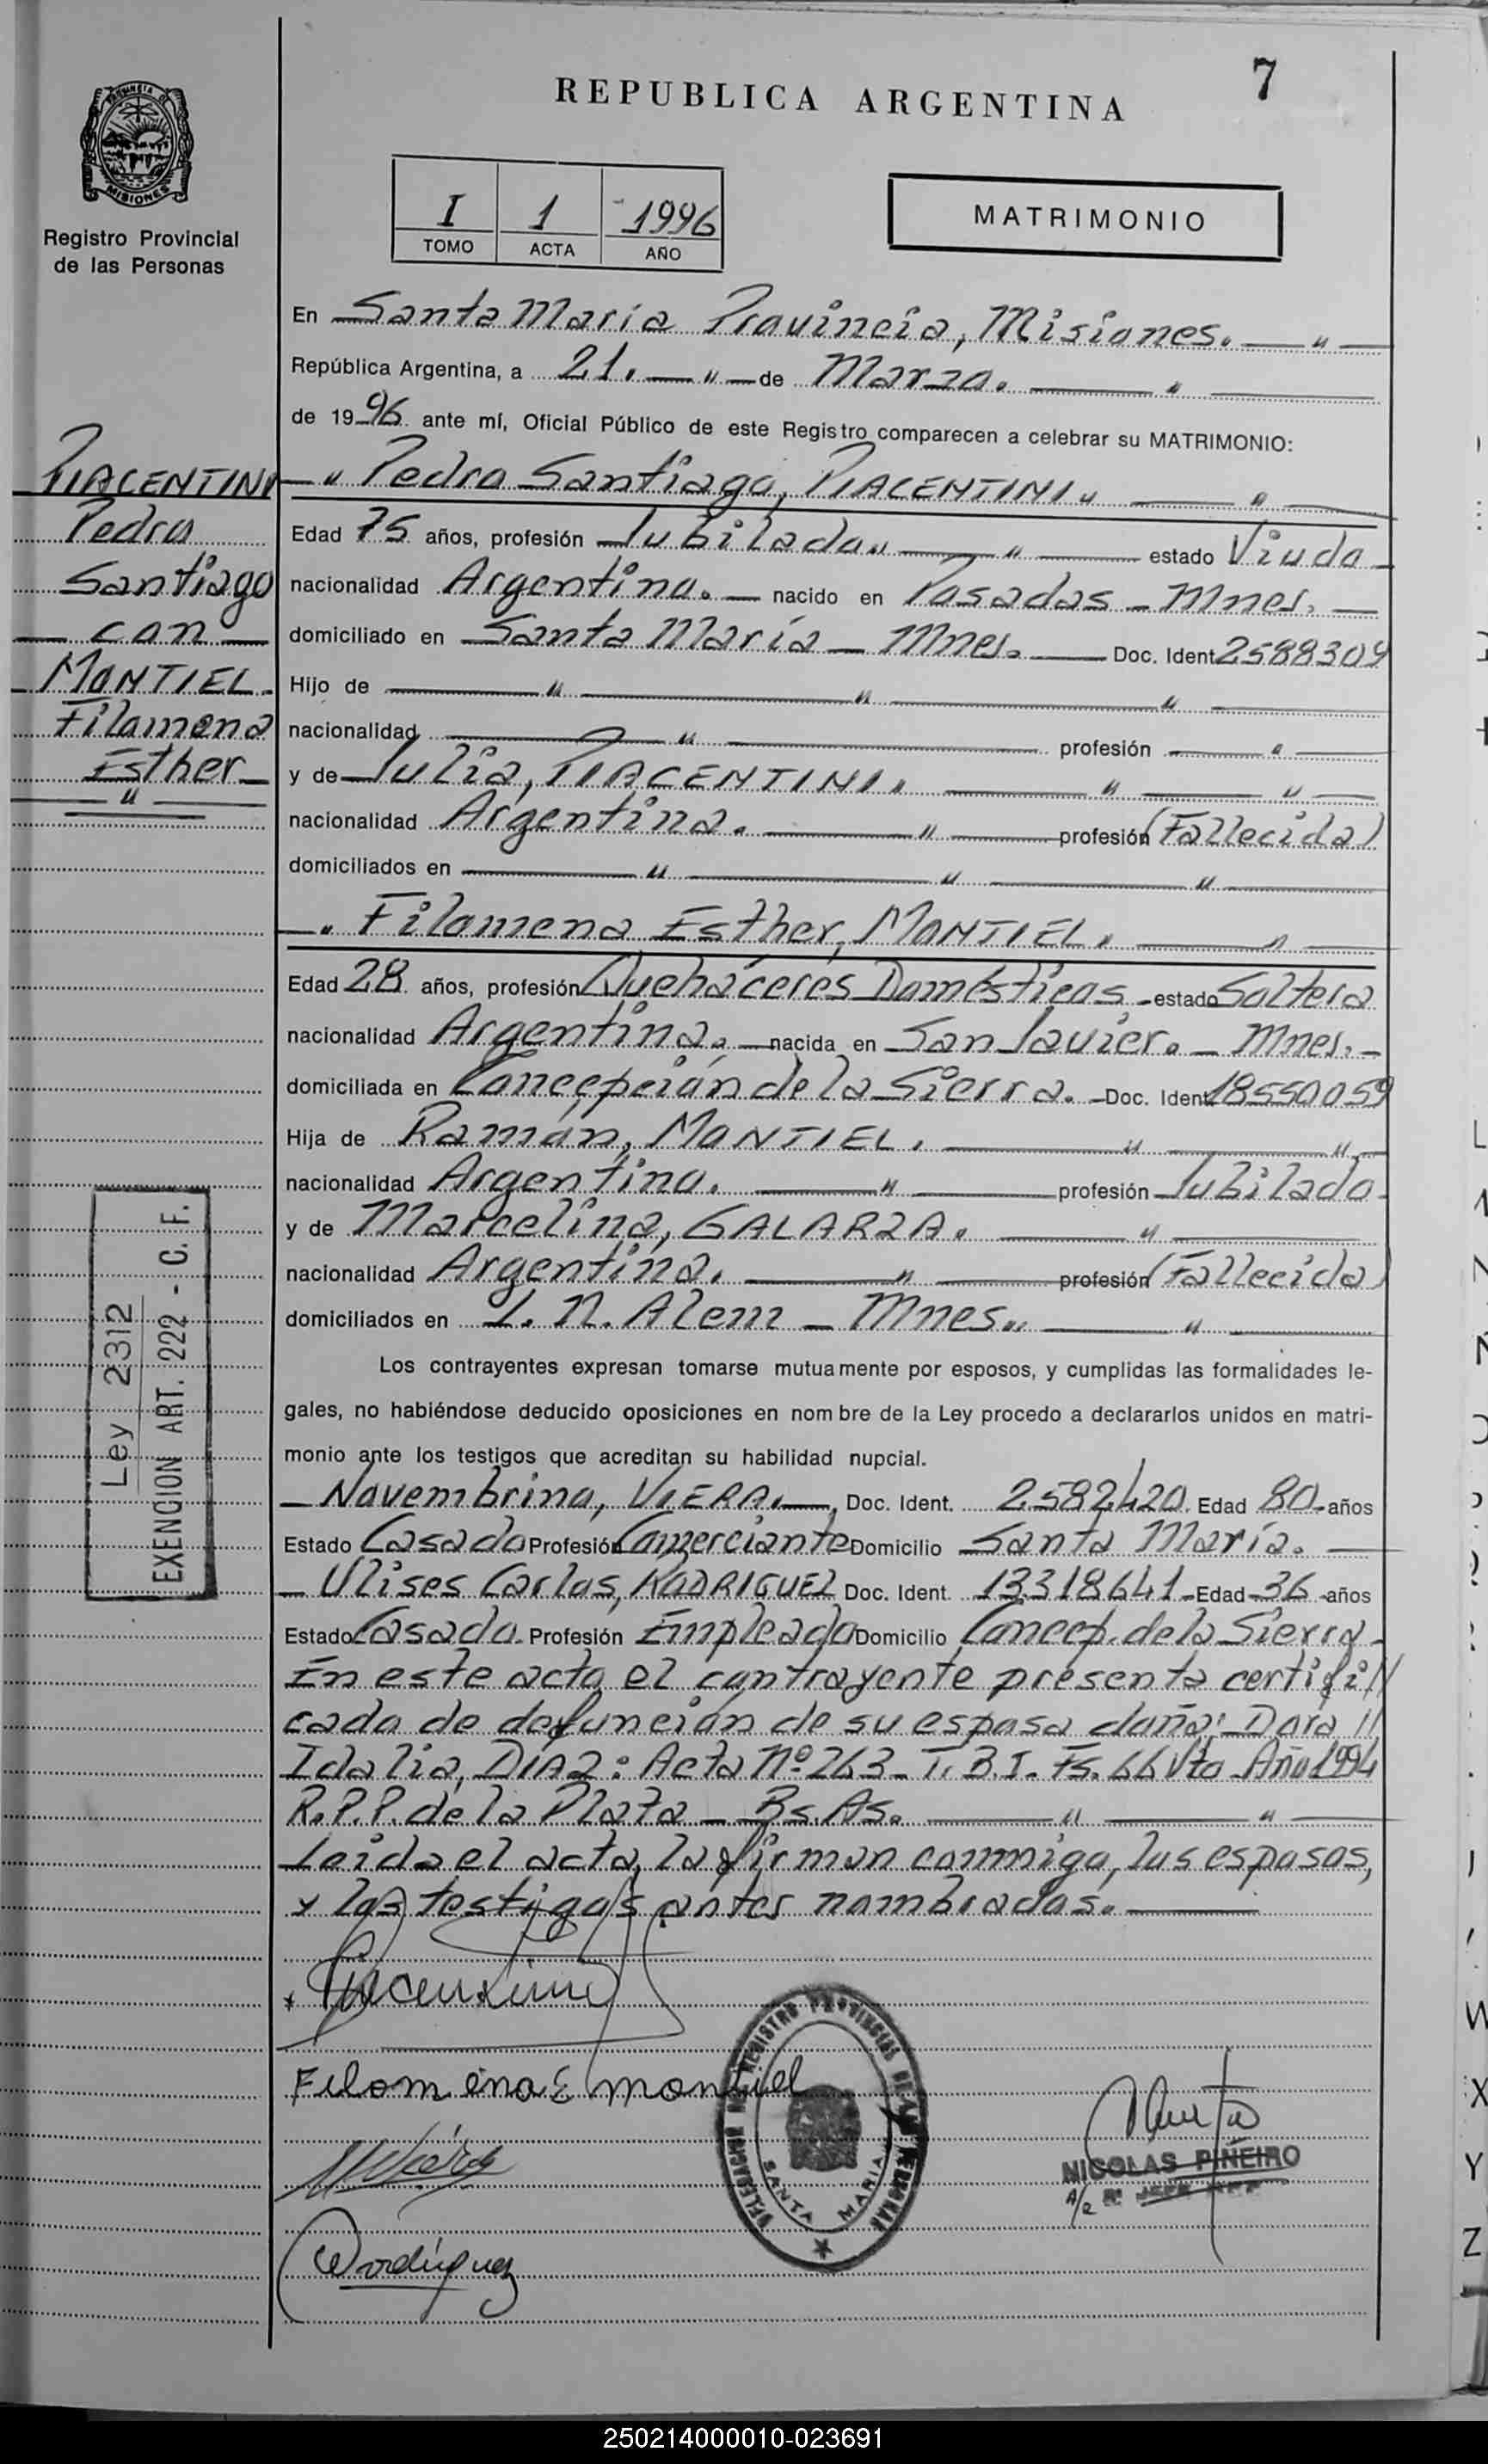 7
REPUBLICA ARGENTINA
PROVINCIA DE
MISIONES
Registro Provincial
de las Personas
I 1 1996
TOMO ACTA AÑO
MATRIMONIO
En Santa María Provincia, Misiones.
República Argentina, a 21. de Marzo.
de 1996 ante mí, Oficial Público de este Registro comparecen a celebrar su MATRIMONIO:
PIACENTINI
Pedro
Santiago
con
MONTIEL
Filomena
Esther
Pedro Santiago, PIACENTINI
Edad 75 años, profesión Jubilado. estado Viudo
nacionalidad Argentino. nacido en Posadas - Mnes.
domiciliado en Santa María - Mnes. Doc. Ident 2588309
Hijo de
nacionalidad profesión
y de Julia, PIACENTINI.
nacionalidad Argentina. profesión (Fallecida)
domiciliados en
Filomena Esther, MONTIEL.
Edad 28 años, profesión Quehaceres Domésticos estado Soltera
nacionalidad Argentina. nacida en San Javier. - Mnes.
domiciliada en Concepción de la Sierra. Doc. Ident 18550059
Hija de Ramón, MONTIEL.
nacionalidad Argentino. profesión Jubilado
y de Marcelina, GALARZA.
nacionalidad Argentina. profesión (Fallecida)
domiciliados en L. N. Alem - Mnes.
Los contrayentes expresan tomarse mutuamente por esposos, y cumplidas las formalidades le-
gales, no habiéndose deducido oposiciones en nombre de la Ley procedo a declararlos unidos en matri-
monio ante los testigos que acreditan su habilidad nupcial.
Novembrino, VIERA, Doc. Ident. 2582420 Edad 80 años
Estado Casado Profesión Comerciante Domicilio Santa María.
Ulises Carlos, RODRIGUEZ Doc. Ident. 13318641 Edad 36 años
Estado Casado Profesión Empleado Domicilio Concep. de la Sierra
En este acto el contrayente presenta certifi//
cado de defunción de su esposa doña: Dora //
Idalia, DIAZ: Acta Nº 263 - T. B.I. Fs. 66 Vto Año 1994
R.P.P. de la Plata - Bs. As.
Leida el acta, la firman conmigo, los esposos,
y los testigos antes nombrados.
Ley 2312
EXENCION ART. 222 - C. F.
Piacentini
Filomena E montiel
Viera
Rodríguez
DELEGACION DEL REGISTRO PROVINCIAL DE LAS PERSONAS
SANTA MARIA
NICOLAS PIÑEIRO
250214000010-023691